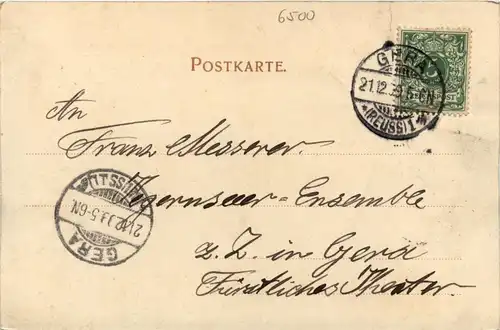 6500
POSTKARTE.
GERA
21.12.99.5-6N.
*(REUSS)1*
An
Franz Messerer.
Tegernseer-Ensemble
z. Z. in Gera
Fürstliches Theater.
GERA
21.12.99.5-6N.